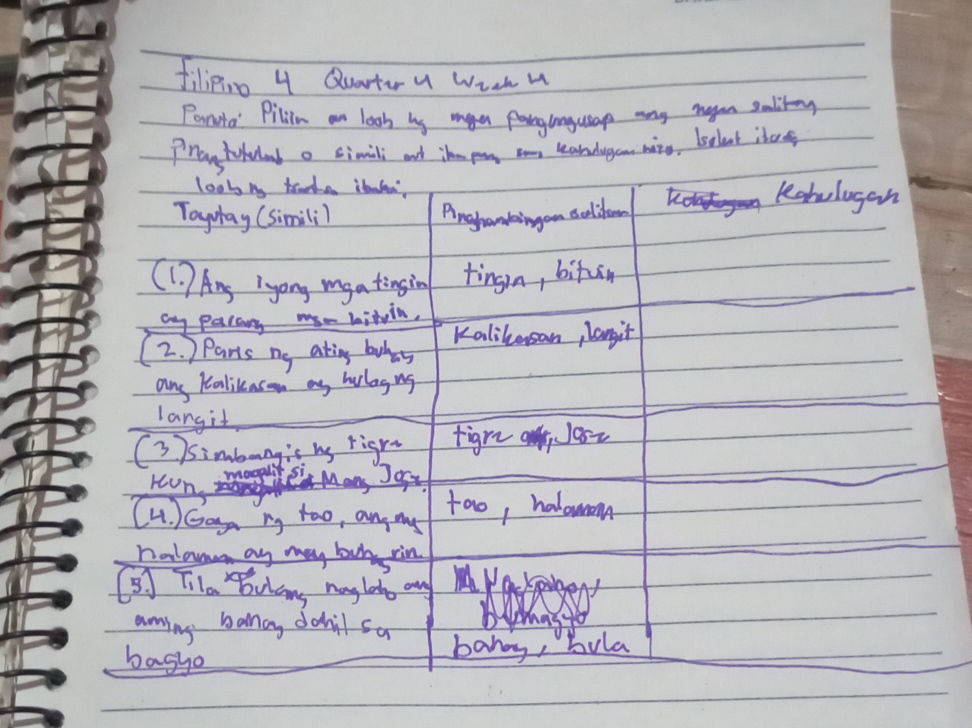 Filipino 4 Quarter 4 Week 4
Panuto: Piliin an loob ng mga pangungusap ang mga salitang
o simili at kahulugan nito. Isulat ito sa
loob ng
Taytay (Simili)
Pinghambingan salitan
Kahulugan
(1.) Ang iyong mga tingin
ay parang mga bitwin.
tingin, bitwin
(2.) Paris ng ating buhay
ang Kalikasan ay hulog ng
langit.
Kalikasan, langit
(3.) Simbangis ng tigre
Kung magalit si Mang Jose.
tigre, Jose
(4.) Gaya ng tao, ang mg
halaman ay may buhay rin.
tao, halaman
(5.) Tila bulang naglaho ang
aming bahay dahil sa
bagyo
bahay, bula